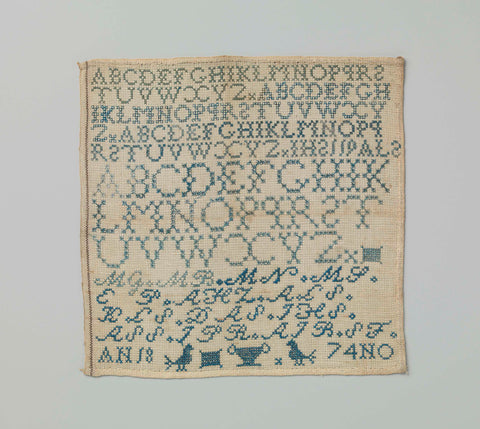 ABCDEFGHIKLMNOPQRS
TUVWXYZxABCDEFGH
IKLMNOPQRSTUVWXY
ZxABCDEFGHIKLMNOPQ
RSTUVWXYZx
ABCDEFGHIK
LMNOPQRST
UVWXYZx
MG. MR. MN. MS.
E P. AHZ. ALS.
HLS. DAS. JHS.
ASS. JPR. AJB. ST.
AN18 74NO